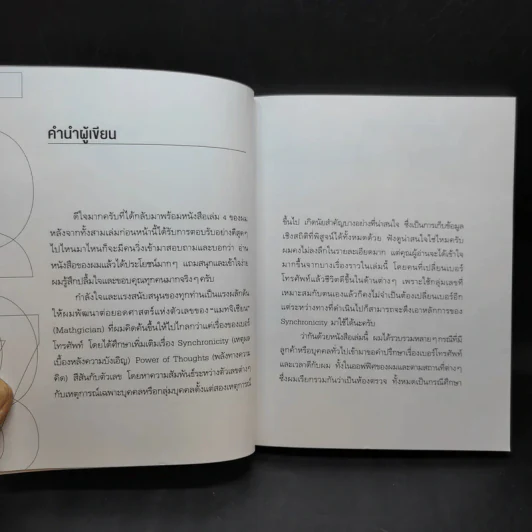 คำนำผู้เขียน
ดีใจมากครับที่ได้กลับมาพร้อมหนังสือเล่ม 4 ของผม
หลังจากทั้งสามเล่มก่อนหน้านี้ได้รับการตอบรับอย่างดีสุดๆ
ไปไหนมาไหนก็จะมีคนวิ่งเข้ามาสอบถามและบอกว่า อ่าน
หนังสือของผมแล้วได้ประโยชน์มากๆ แถมสนุกและเข้าใจง่าย
ผมรู้สึกปลื้มใจและขอบคุณทุกคนมากจริงๆครับ
กำลังใจและแรงสนับสนุนของทุกท่านเป็นแรงผลักดัน
ให้ผมพัฒนาต่อยอดศาสตร์แห่งตัวเลขของ"แมทจิเชียน"
(Mathgician) ที่ผมคิดค้นขึ้นให้ไปไกลกว่าแค่เรื่องของเบอร์
โทรศัพท์ โดยได้ศึกษาเพิ่มเติมเรื่อง Synchronicity (เหตุผล
เบื้องหลังความบังเอิญ) Power of Thoughts (พลังทางความ
คิด) สีสันกับตัวเลข โดยหาความสัมพันธ์ระหว่างตัวเลขต่างๆ
กับเหตุการณ์เฉพาะบุคคลหรือกลุ่มบุคคลตั้งแต่สองเหตุการณ์
ขึ้นไป เกิดนัยสำคัญบางอย่างที่น่าสนใจ ซึ่งเป็นการเก็บข้อมูล
เชิงสถิติที่พิสูจน์ได้ทั้งหมดด้วย ฟังดูน่าสนใจใช่ไหมครับ
ผมคงไม่ลงลึกในรายละเอียดมาก แต่คุณผู้อ่านจะได้เข้าใจ
มากขึ้นจากบางเรื่องราวในเล่มนี้ โดยคนที่เปลี่ยนเบอร์
โทรศัพท์แล้วชีวิตดีขึ้นในด้านต่างๆ เพราะใช้กลุ่มเลขที่
เหมาะสมกับตนเองแล้วก็คงไม่จำเป็นต้องเปลี่ยนเบอร์อีก
แต่ระหว่างทางที่ดำเนินไปก็สามารถจะดึงเอาหลักการของ
Synchronicity มาใช้ได้นะครับ
ว่ากันด้วยหนังสือเล่มนี้ ผมได้รวบรวมหลายๆกรณีที่มี
ลูกค้าหรือบุคคลทั่วไปเข้ามาขอคำปรึกษาเรื่องเบอร์โทรศัพท์
และเวลาดีกับผม ทั้งในออฟฟิศของผมและตามสถานที่ต่างๆ
ซึ่งผมเรียกรวมกันว่าเป็นห้องตรวจ ทั้งหมดเป็นกรณีศึกษา